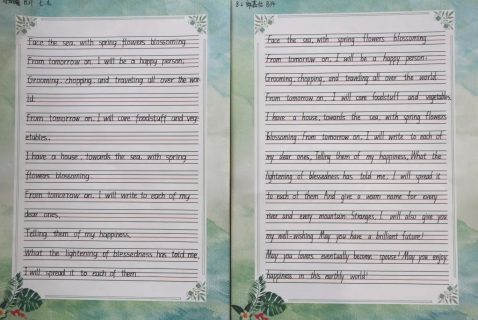 Face the sea, with spring flowers blossoming
From tomorrow on, I will be a happy person;
Grooming, chopping, and traveling all over the wor-
ld.
From tomorrow on, I will care foodstuff and veg-
etables.
I have a house, towards the sea, with spring
flowers blossoming.
From tomorrow on, I will write to each of my
dear ones,
Telling them of my happiness,
What the lightening of blessedness has told me,
I will spread it to each of them
Face the sea, with spring flowers blossoming
From tomorrow on, I will be a happy person;
Grooming, chopping, and traveling all over the world
From tomorrow on, I will care foodstuff and vegetables.
I have a house, towards the sea, with spring flowers
blossoming. From tomorrow on, I will write to each of
my dear ones, Telling them of my happiness, What the
lightening of blessedness has told me, I will spread it
to each of them And give a warm name for every
river and every mountain Stranges, I will also give you
my well-wishing May you have a brilliant future!
May you lovers eventually become spouse! May you enjoy
happiness in this earthly world!